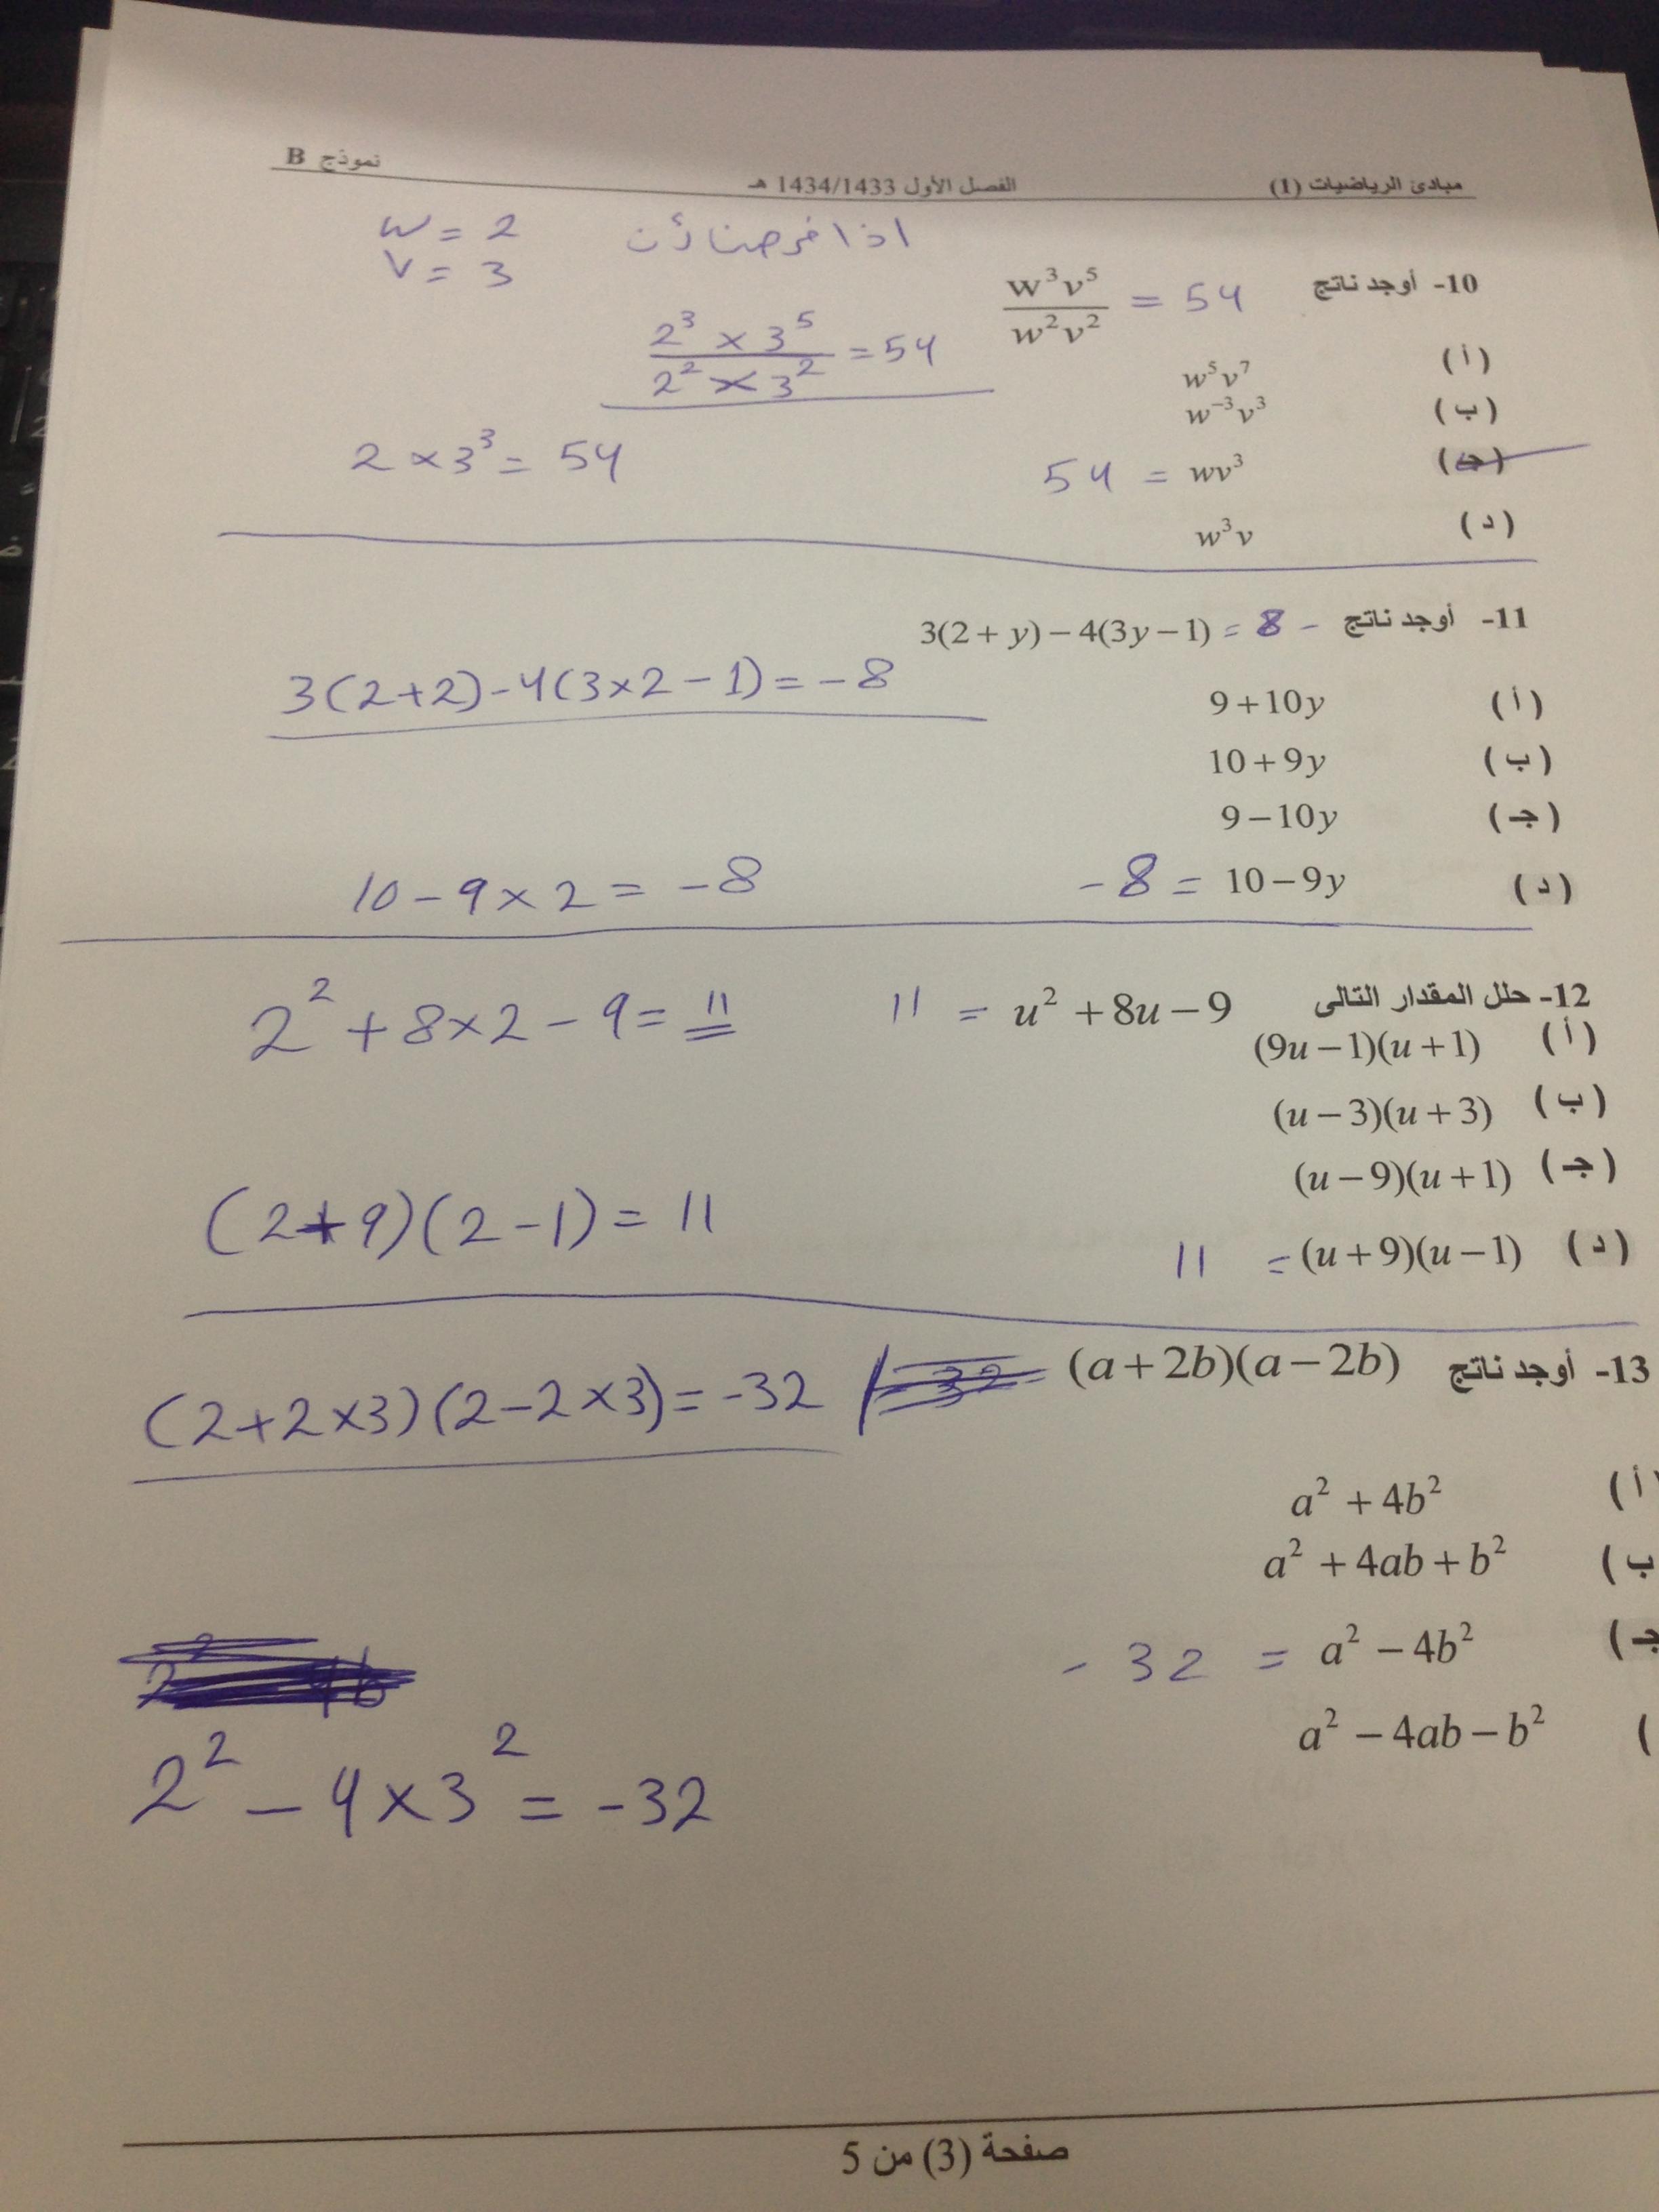 مبادئ الرياضيات (1) الفصل الأول 1434/1433 هـ نموذج B
اذا فرضنا أن w = 2
v = 3
10- أوجد ناتج w³v⁵ / w²v² = 54
2³ × 3⁵ / 2² × 3² = 54
(أ) w⁵v⁷
(ب) w⁻³v³
(جـ) wv³ = 54
2 × 3³ = 54
(د) w³v
11- أوجد ناتج 3(2 + y) − 4(3y − 1) = 8 -
3(2+2) - 4(3×2 - 1) = - 8
(أ) 9 + 10y
(ب) 10 + 9y
(جـ) 9 − 10y
(د) 10 − 9y = - 8
10 - 9 × 2 = - 8
12- حلل المقدار التالى u² + 8u − 9 = 11
2² + 8×2 - 9 = 11
(أ) (9u − 1)(u + 1)
(ب) (u − 3)(u + 3)
(جـ) (u − 9)(u + 1)
(د) (u + 9)(u − 1) = 11
(2+9)(2-1) = 11
13- أوجد ناتج (a + 2b)(a − 2b)
(2+2×3)(2-2×3) = -32
أ) a² + 4b²
ب) a² + 4ab + b²
جـ) a² − 4b² = - 32
) a² − 4ab − b²
2² - 4×3² = -32
صفحة (3) من 5